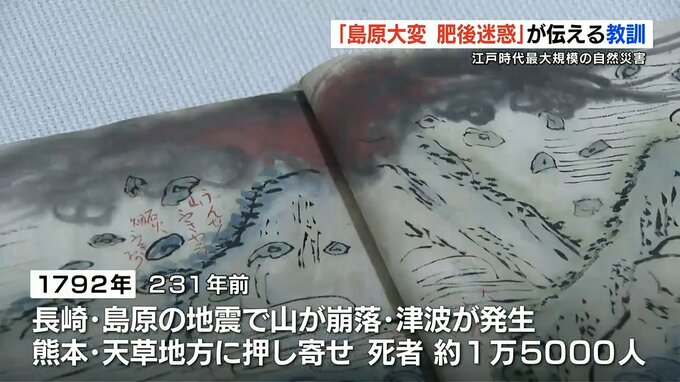 「島原大変 肥後迷惑」が伝える教訓
江戸時代最大規模の自然災害
1792年 231年前
長崎・島原の地震で山が崩落・津波が発生
熊本・天草地方に押し寄せ 死者 約1万5000人